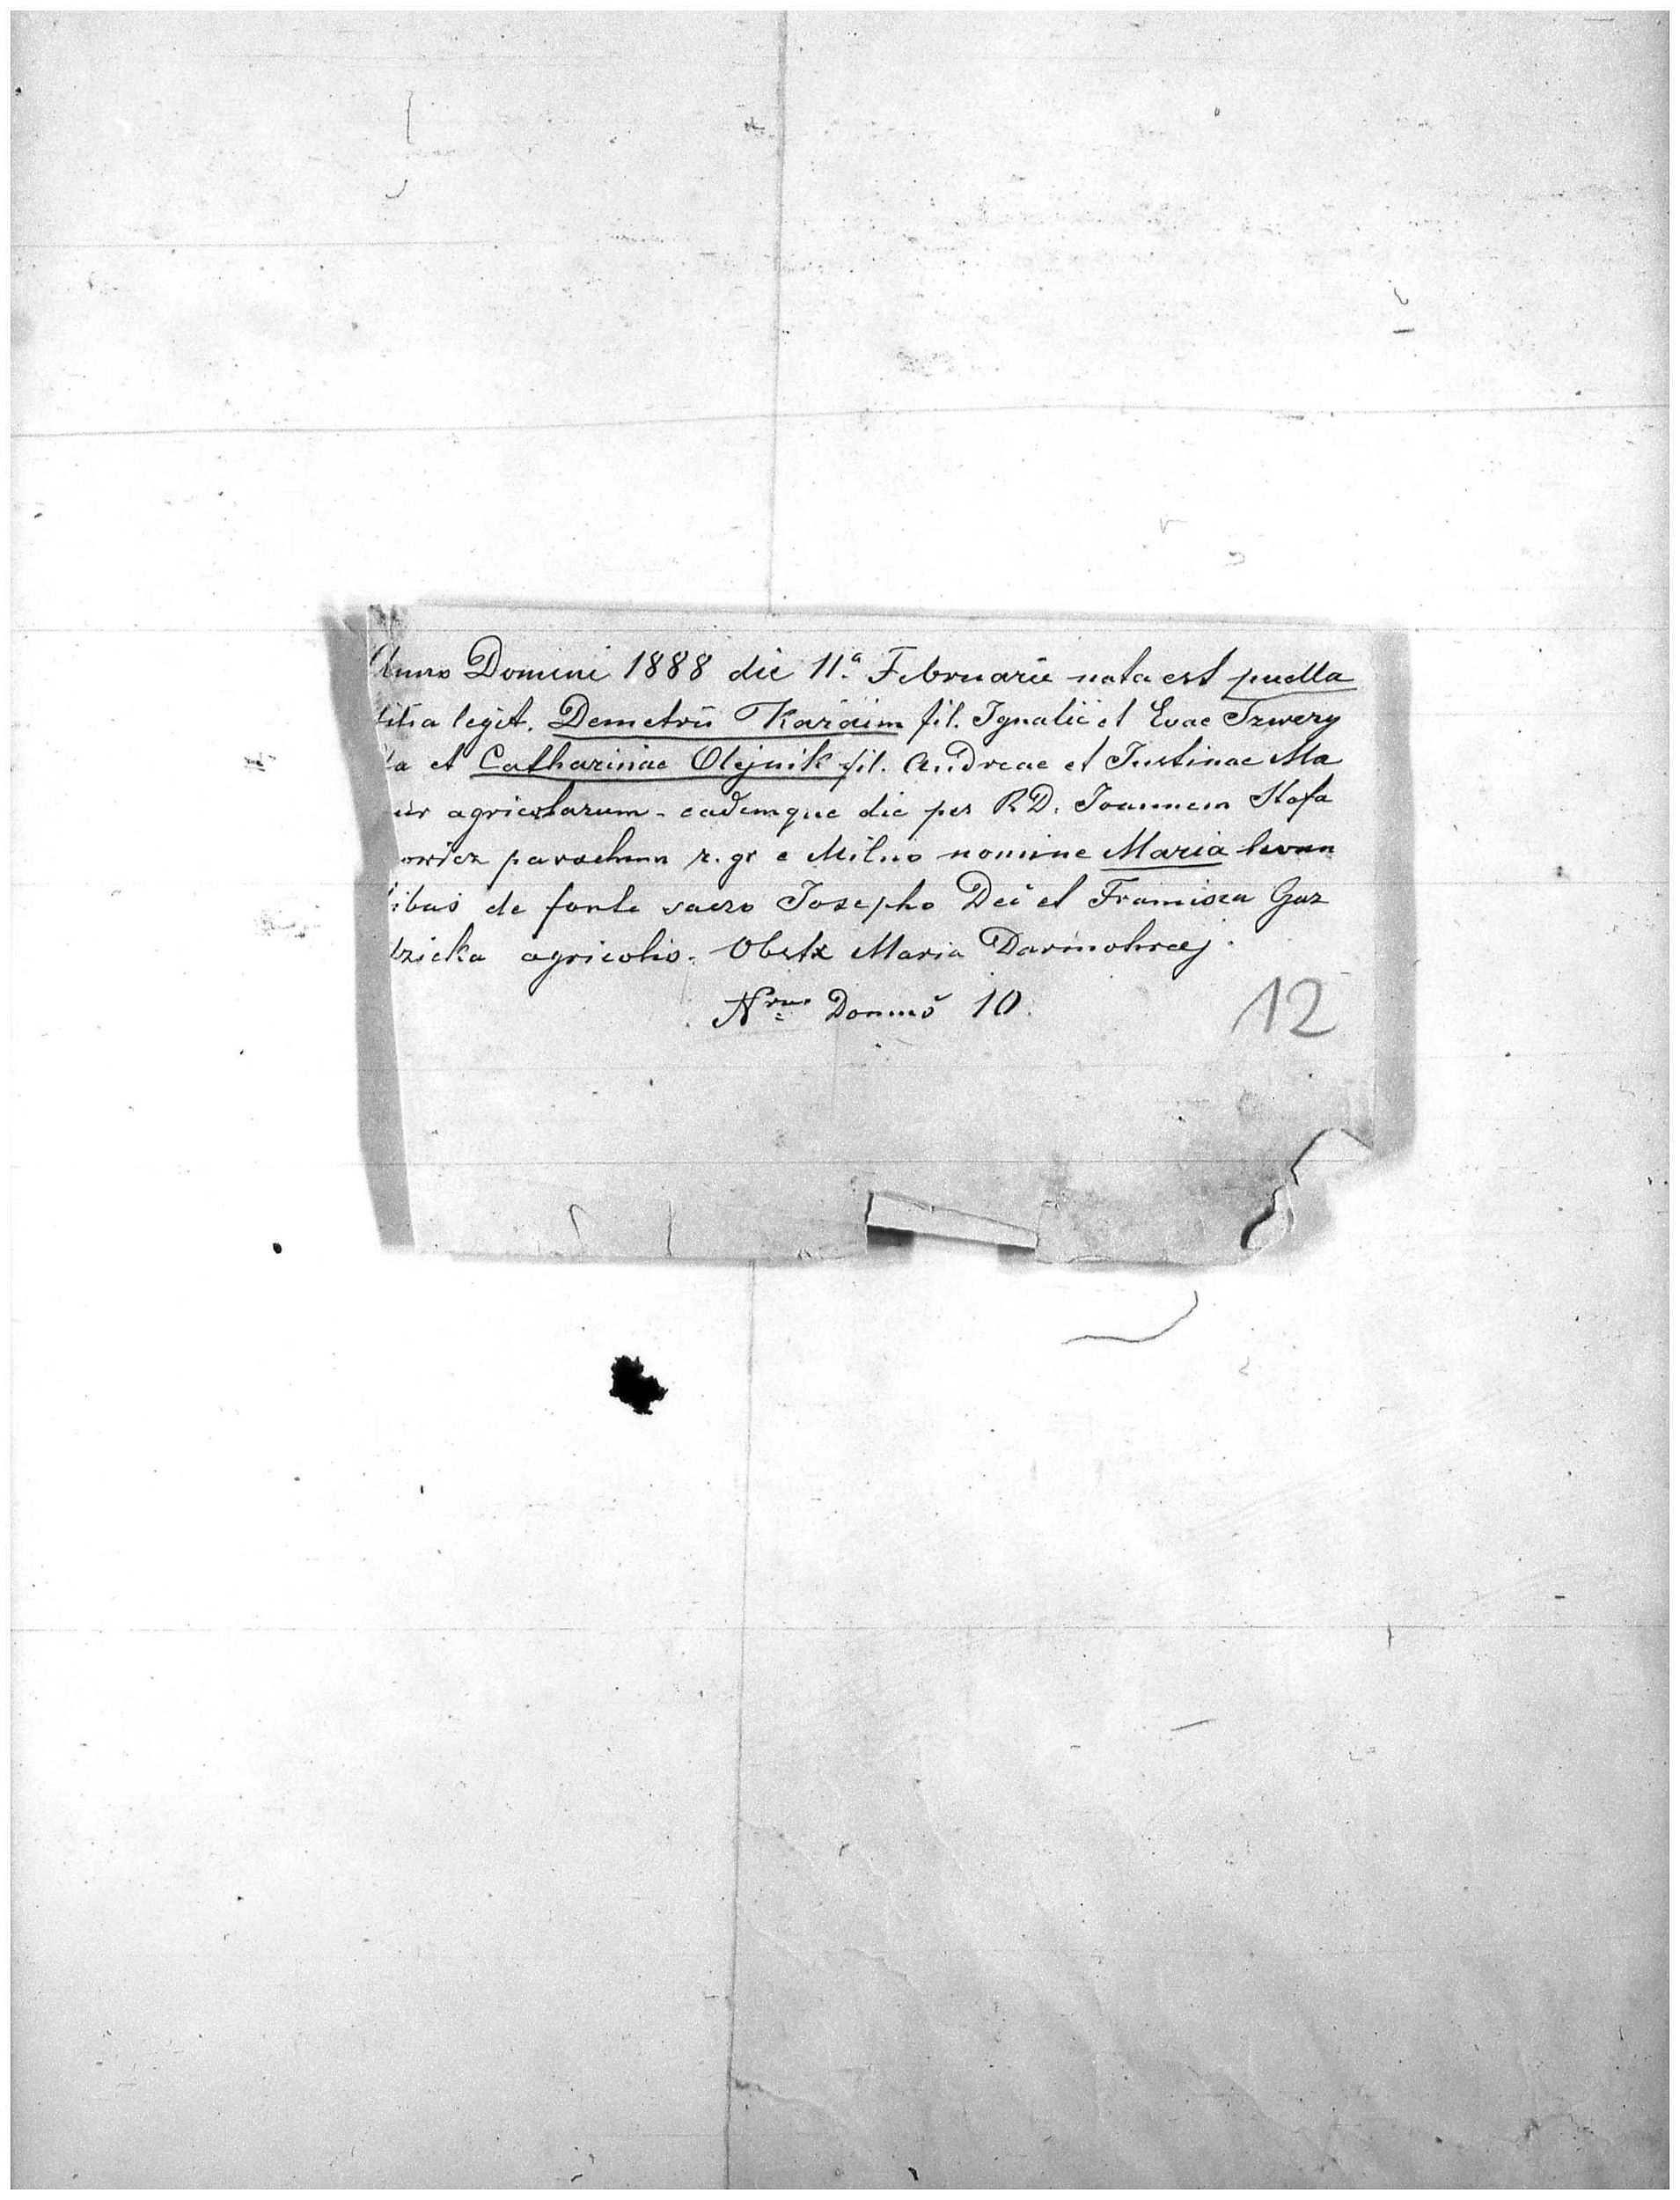 Anno Domini 1888 die 11.ª Februarii nata est puella
filia legit. Demetrii Karaim fil. Ignatii et Evae Tzwery
la et Catharinae Olejnik fil. Andreae et Justinae Ma
ur agricolarum. eademque die per R.D. Joannem Stofa
owicz parochum r. gr e Milno nomine Maria levan
tibus de fonte sacro Josepho Dei et Francisca Guz
dzicka agricolis. Obstx Maria Darmohraj.
Nrus Domus 10.
12